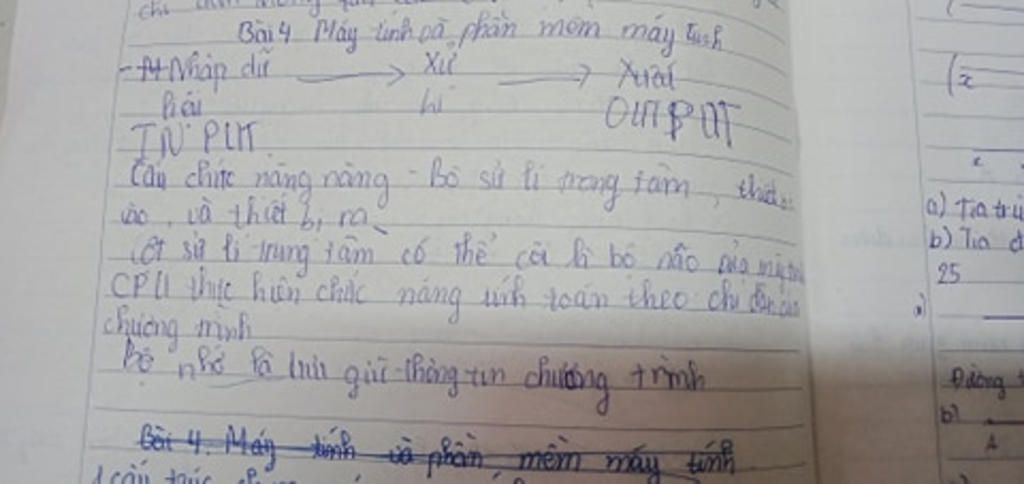 Bài 4 Máy tính và phần mềm máy tính
- Nhập dữ → Xử → Xuất
lí OUTPUT
INPUT
Cấu chức năng năng - Bô sử lí trong tâm, thiết
vào, và thiết bị ra
sử lí trung tâm có thể côi là bộ não của máy
CPU thực hiện chức năng tính toán theo chỉ dẫn của
chương trình
Bộ nhớ là lưu giữ thông tin chương trình
Bài 4. Máy tính và phần mềm máy tính
1 cấu trúc
a) Tia
b) Tia
25
a)
Đường
b)
A